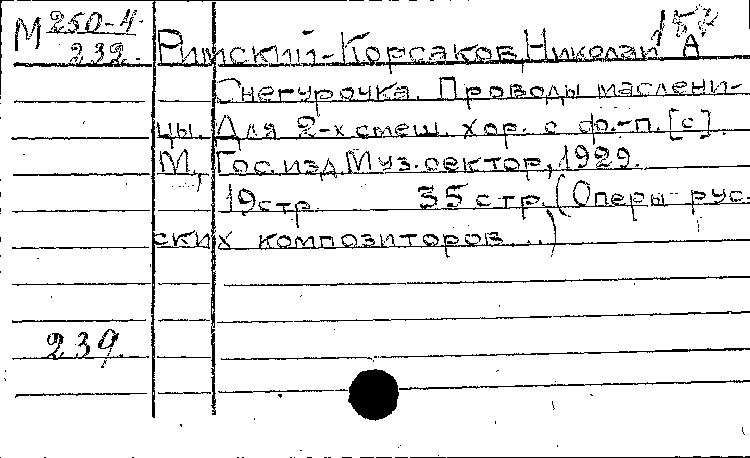 М 250-4.
232. Римский-Корсаков, Николай А
Снегурочка. Проводы маслени-
цы. Для 2-х смеш. хор. с ф.-п. [с]
М., Гос. изд. Муз. сектор, 1929.
19 стр. 35 стр. (Оперы рус-
ских композиторов...)
239.